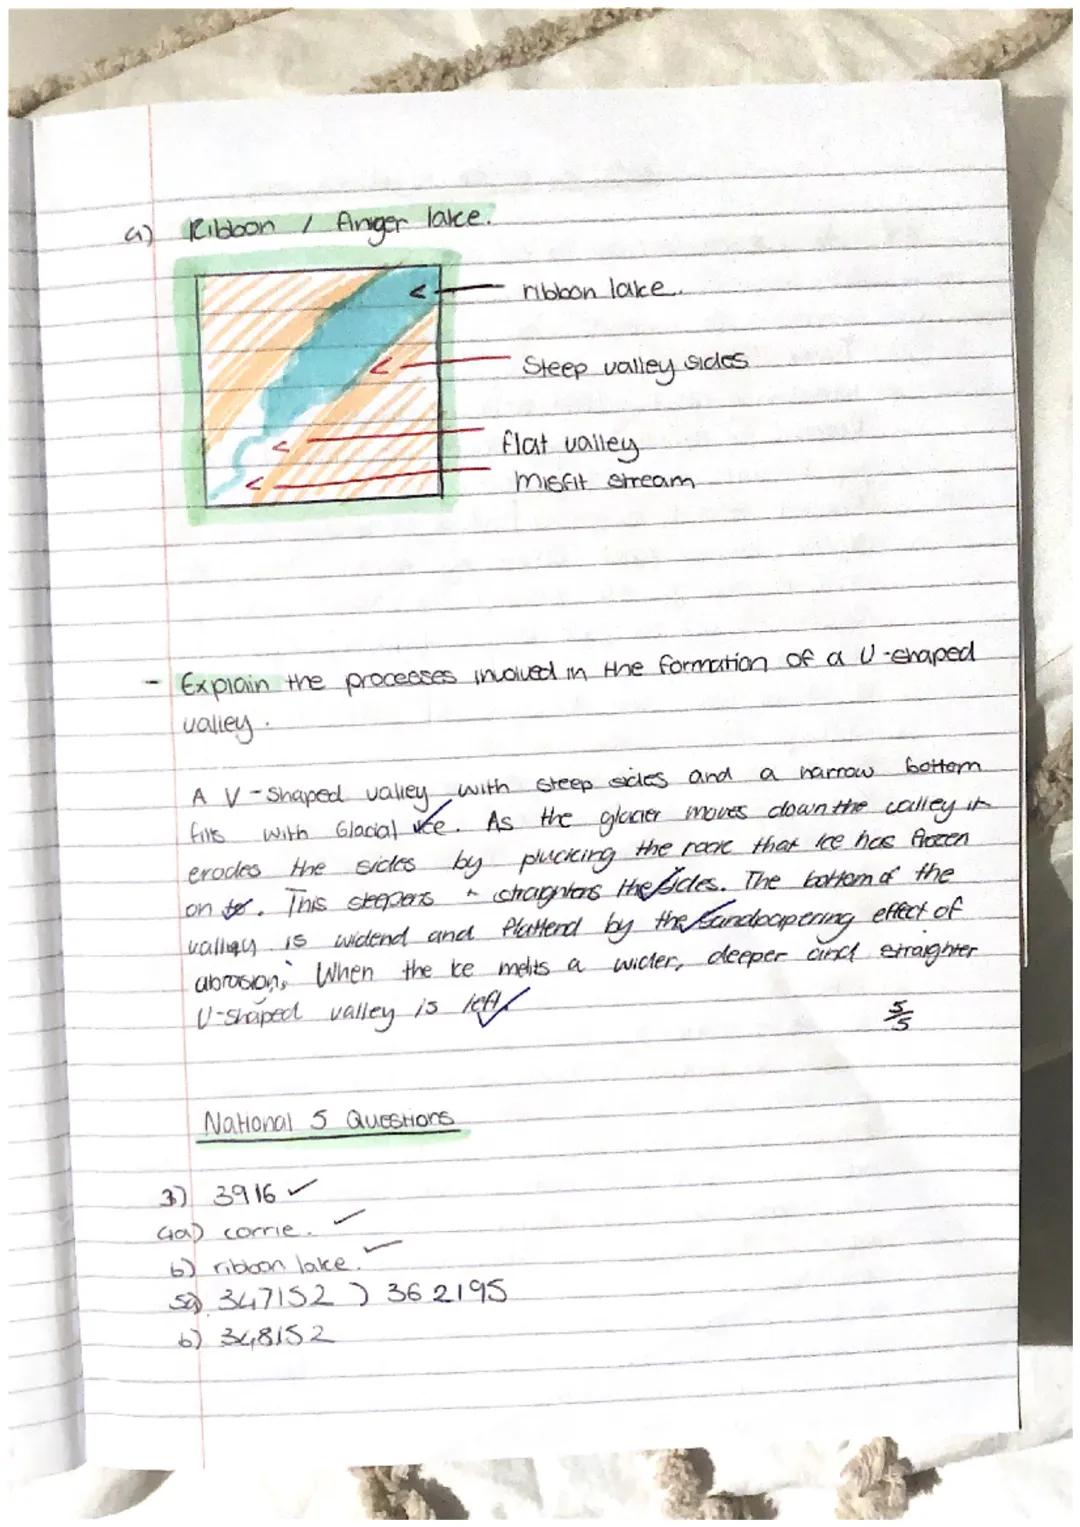 a) Ribbon / finger lake.
ribbon lake.
Steep valley sides
flat valley
misfit stream
- Explain the processes involved in the formation of a U-shaped
valley.
A V-shaped valley with steep sides and a narrow bottom
fills with Glacial ice. As the glacier moves down the valley it
erodes the sides by plucking the rock that ice has frozen
on to. This steepens + straightens the sides. The bottom of the
valley is widend and flattend by the sandpapering effect of
abrasion. When the ice melts a wider, deeper and straighter
U-shaped valley is left
5/5
National 5 Questions
3) 3916 ✓
4a) corrie. ✓
b) ribbon lake. ✓
5a) 347152 ) 362195
b) 348152